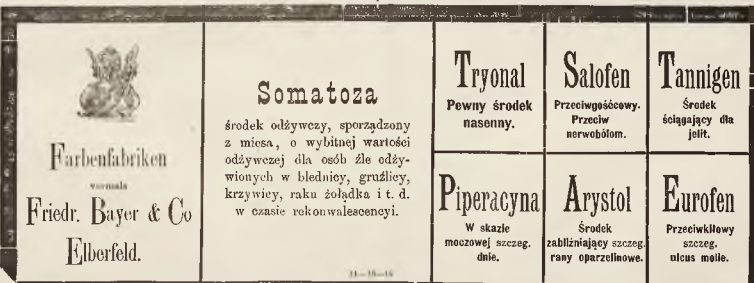 Farbenfabriken
vormals
Friedr. Bayer & Co
Elberfeld.
Somatoza
środek odżywczy, sporządzony
z mięsa, o wybitnej wartości
odżywczej dla osób źle odży-
wionych w blednicy, gruźlicy,
krzywicy, raku żołądka i t. d.
w czasie rekonwalescencyi.
11—10—16
Tryonal
Pewny środek
nasenny.
Salofen
Przeciwgośćcowy.
Przeciw
nerwobólom.
Tannigen
Środek
ściągający dla
jelit.
Piperacyna
W skazie
moczowej szczeg.
dnie.
Arystol
Środek
zabliźniający szczeg.
rany oparzelinowe.
Eurofen
Przeciwkiłowy
szczeg.
ulcus molle.